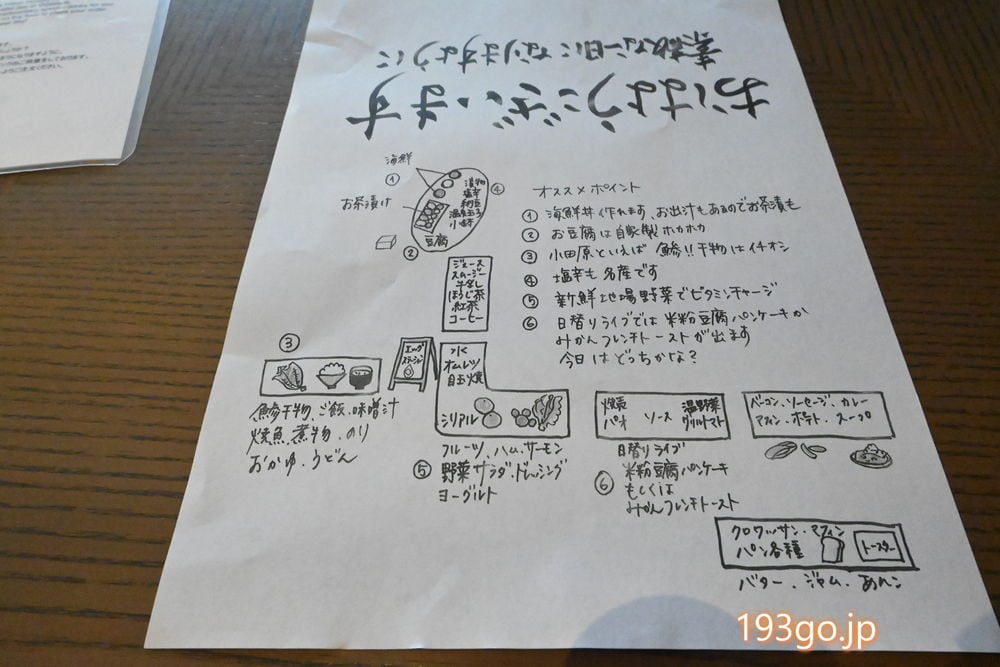 おはようございます
素敵な一日になりますように
海鮮
①
お茶漬け
漬物
塩辛
納豆
温泉玉子
小鉢
④
豆腐
②
オススメポイント
① 海鮮丼作れます、お出汁もあるのでお茶漬も
② お豆腐は自家製ホカホカ
③ 小田原といえば 鯵!!干物はイチオシ
④ 塩辛も名産です
⑤ 新鮮地場野菜でビタミンチャージ
⑥ 日替りライブでは米粉豆腐パンケーキか
みかんフレンチトーストが出ます
今日はどっちかな?
ジュース
スムージー
牛乳
ほうじ茶
紅茶
コーヒー
③
エッグ
ステーション
水
オムレツ
目玉焼
シリアル
鯵干物、ご飯、味噌汁
焼魚、煮物、のり
おかゆ、うどん
フルーツ、ハム、サーモン
⑤ 野菜サラダ・ドレッシング
ヨーグルト
ソース
温野菜
グリルトマト
日替りライブ
⑥ 米粉豆腐パンケーキ
もしくは
みかんフレンチトースト
ベーコン、ソーセージ、カレー
ポテト、スープ
クロワッサン・マフィン
パン各種
トースター
バター、ジャム、あんこ
193go.jp